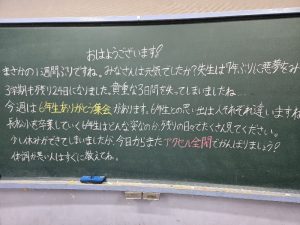 おはようございます!
まさかの1週間ぶりですね。みなさんは元気でしたか?先生は7年ぶりに悪夢をみ
3学期も残り24日になりました。貴重な3日間を失ってしまいましたね…
今週は6年生ありがとう集会があります。6年生との思い出は人それぞれ違いますね
を卒業していく6年生はどんな姿なのか残りの日々でたくさん見てください。
少し休みができてしまいましたが、今日からまたアクセル全開でがんばりましょう?
体調が悪い人はすぐに教えてね。